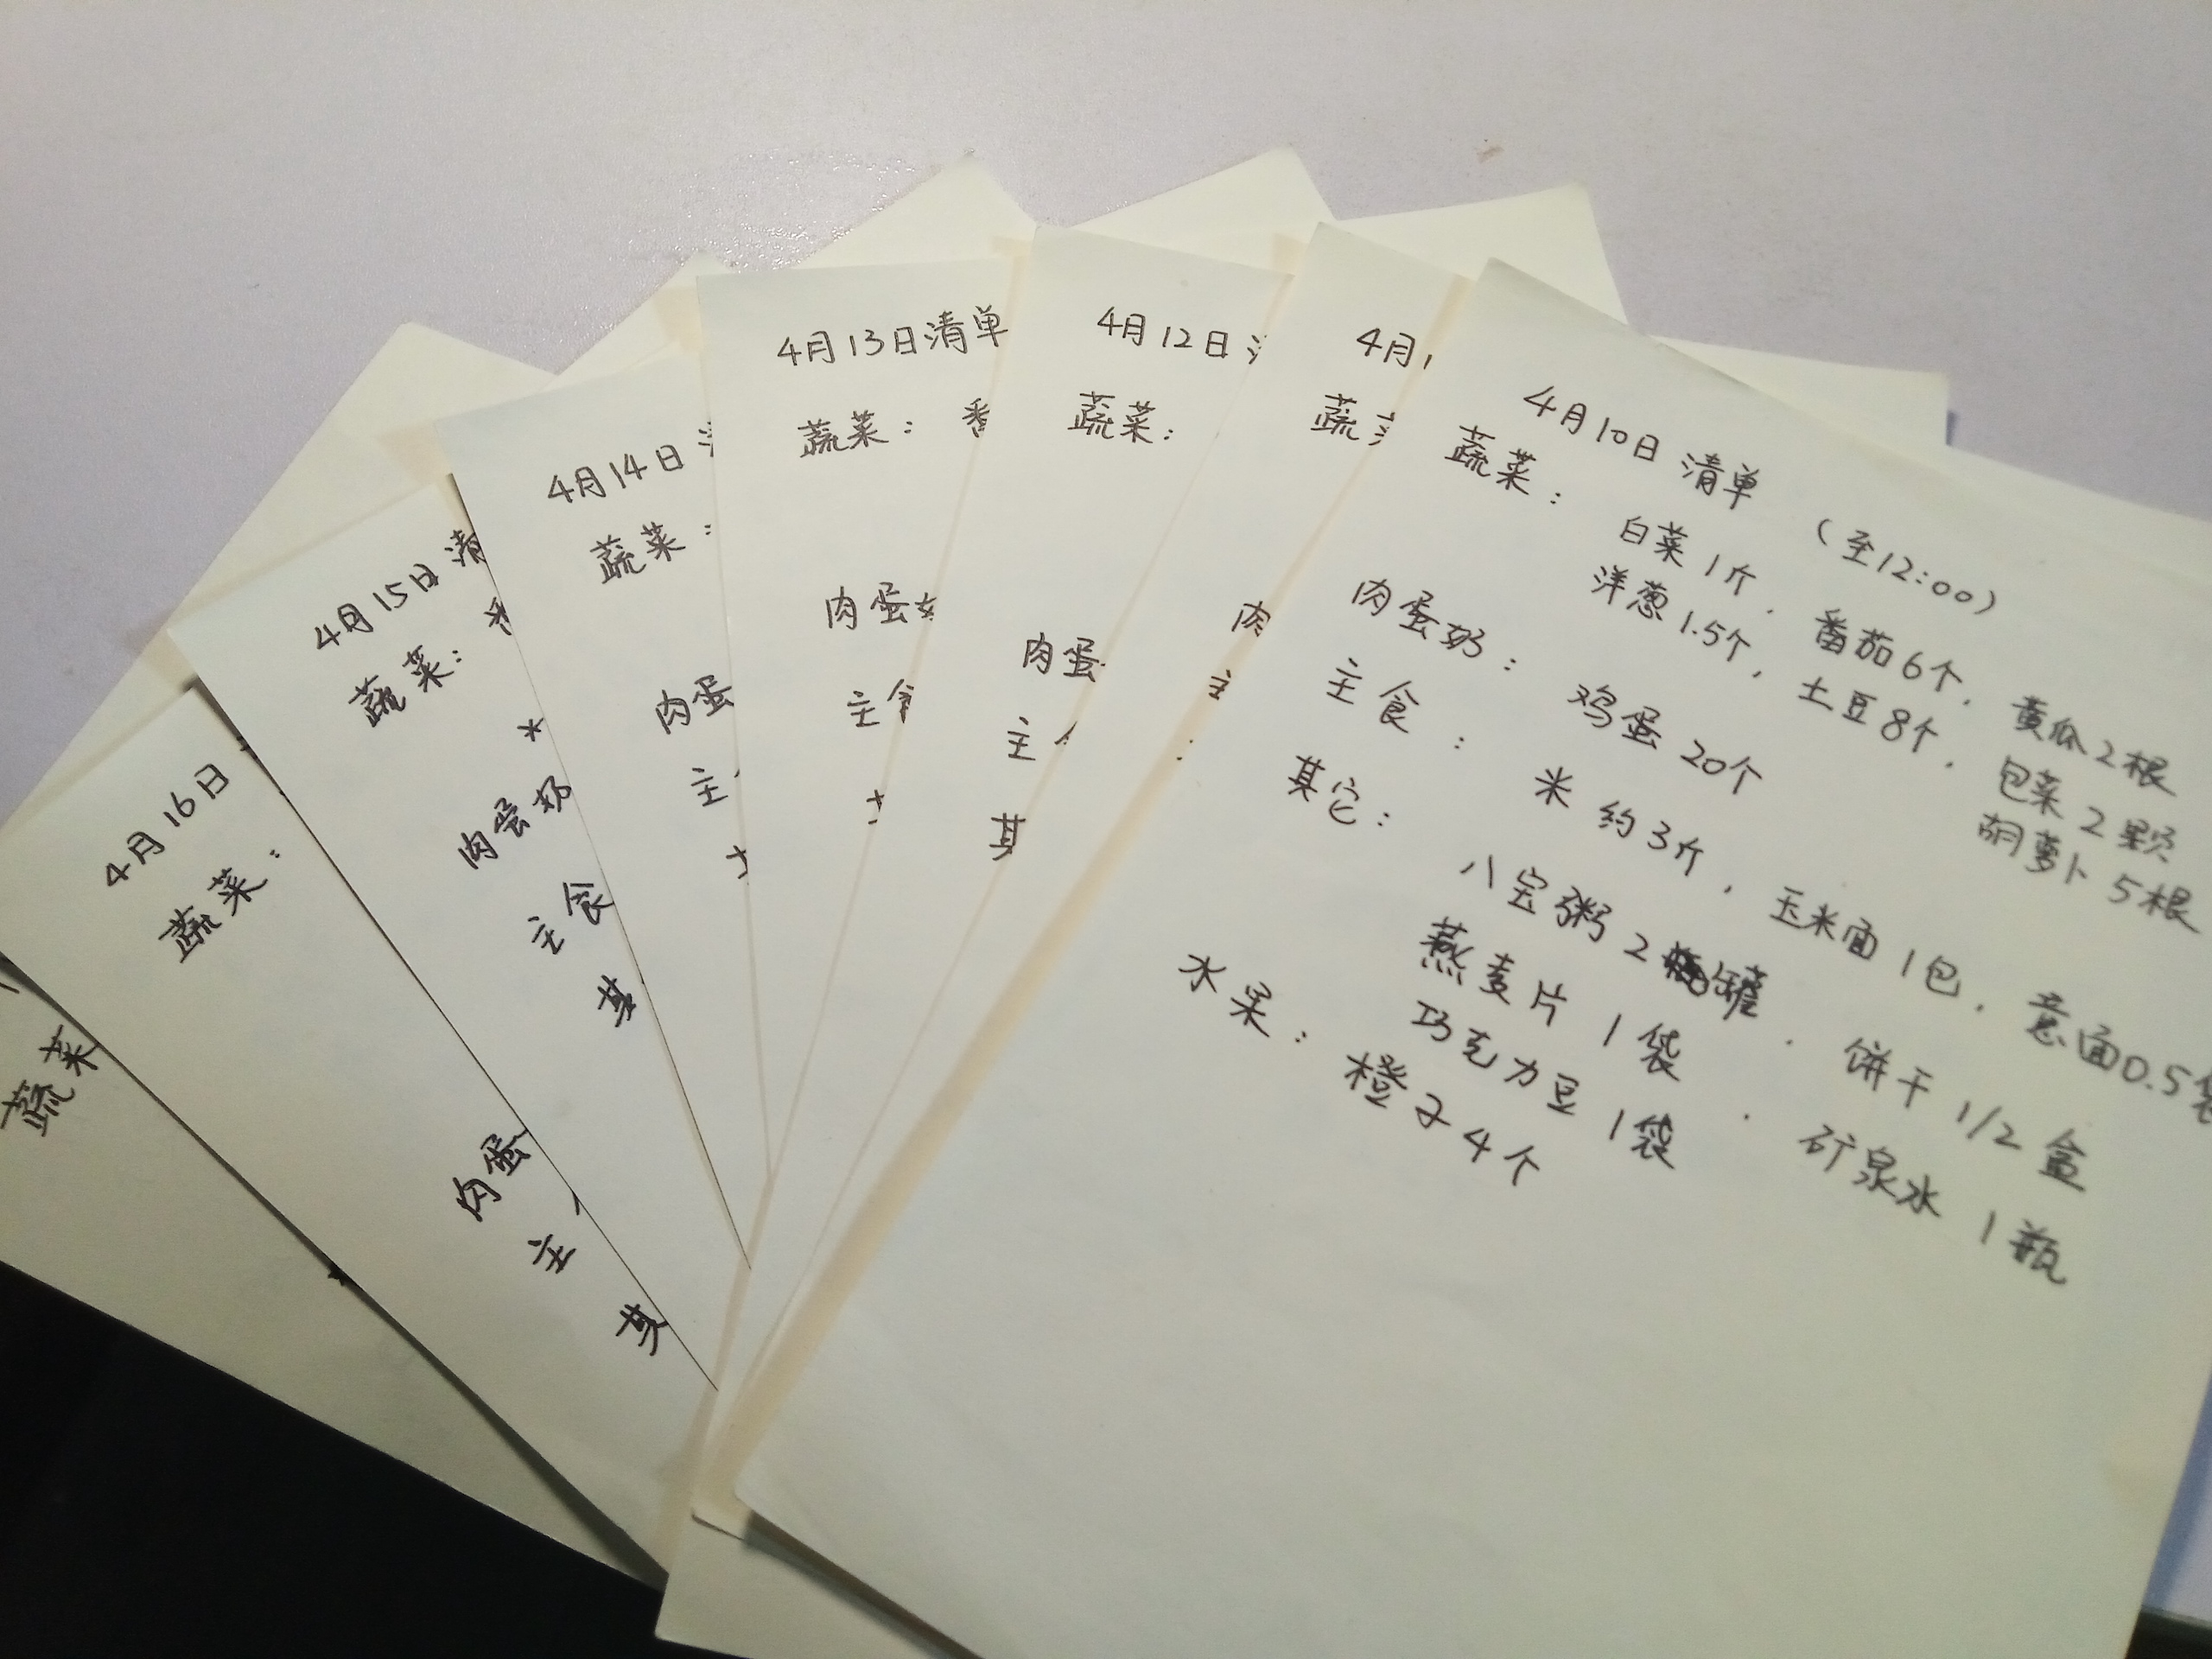 4月10日 清单 (至12:00)
蔬菜: 白菜 1斤, 番茄6个, 黄瓜2根
洋葱1.5个, 土豆8个, 包菜2颗
胡萝卜5根
肉蛋奶: 鸡蛋 20个
主食: 米 约3斤, 玉米面 1包, 意面0.5袋
其它: 八宝粥 2罐, 饼干 1/2 盒
燕麦片 1袋, 矿泉水 1瓶
巧克力豆 1袋
水果: 橙子4个
4月1
蔬
肉
主
4月12日
蔬菜:
肉蛋
主
其
4月13日清单
蔬菜: 番
肉蛋奶
主食
4月14日
蔬菜:
肉蛋
主
4月15日 清
蔬菜: 番
*
肉蛋奶
主食
其
4月16日
蔬菜:
肉蛋
主
其
蔬菜